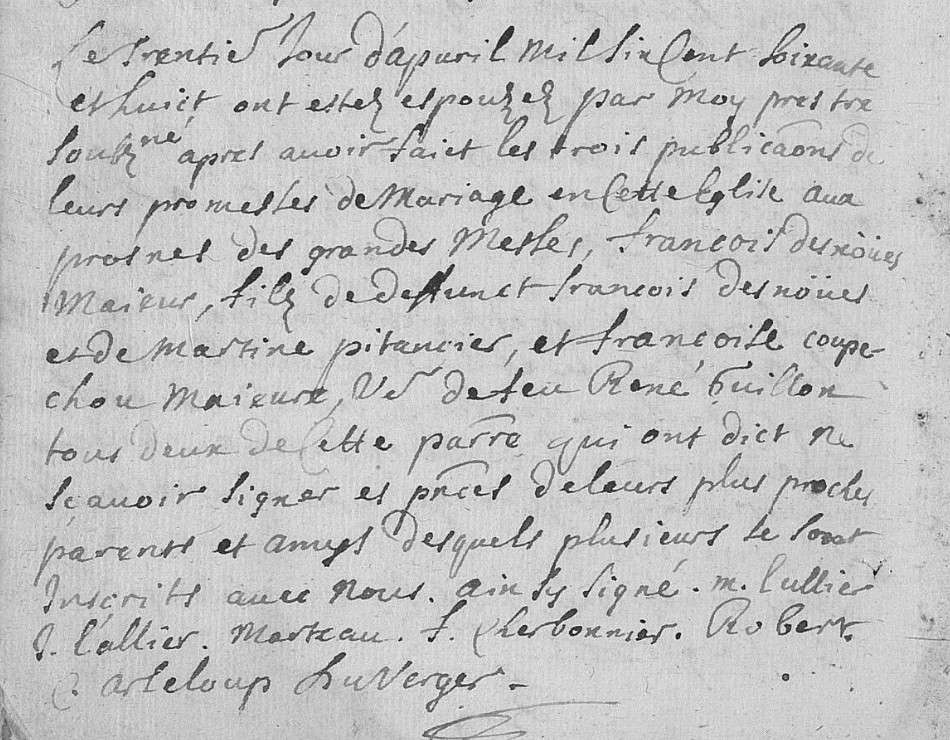 Le trentie Jour d'apuril Mil Six Cent Soixante
et huict ont estez espouzez par Moy prestre
Soubzne apres auoir faict les trois publicaons de
leurs promesses de Mariage en Cette Eglise aux
prosnes des grandes Messes, francois desnöues
Maieur, filz de deffunct francois desnöues
et de Martine pitancier, et francoise coupe-
chou Maieure, Ve de feu René Guillon
tous deux de Cette parre qui ont dict ne
scauoir signer es pnces de leurs plus proches
parents et amys desquels plusieurs se sont
Inscrits auec nous. ainsy signé. m. lullier
J. lallier. Marteau. f. Cherbonnier. Robert.
arleloup duVerger -